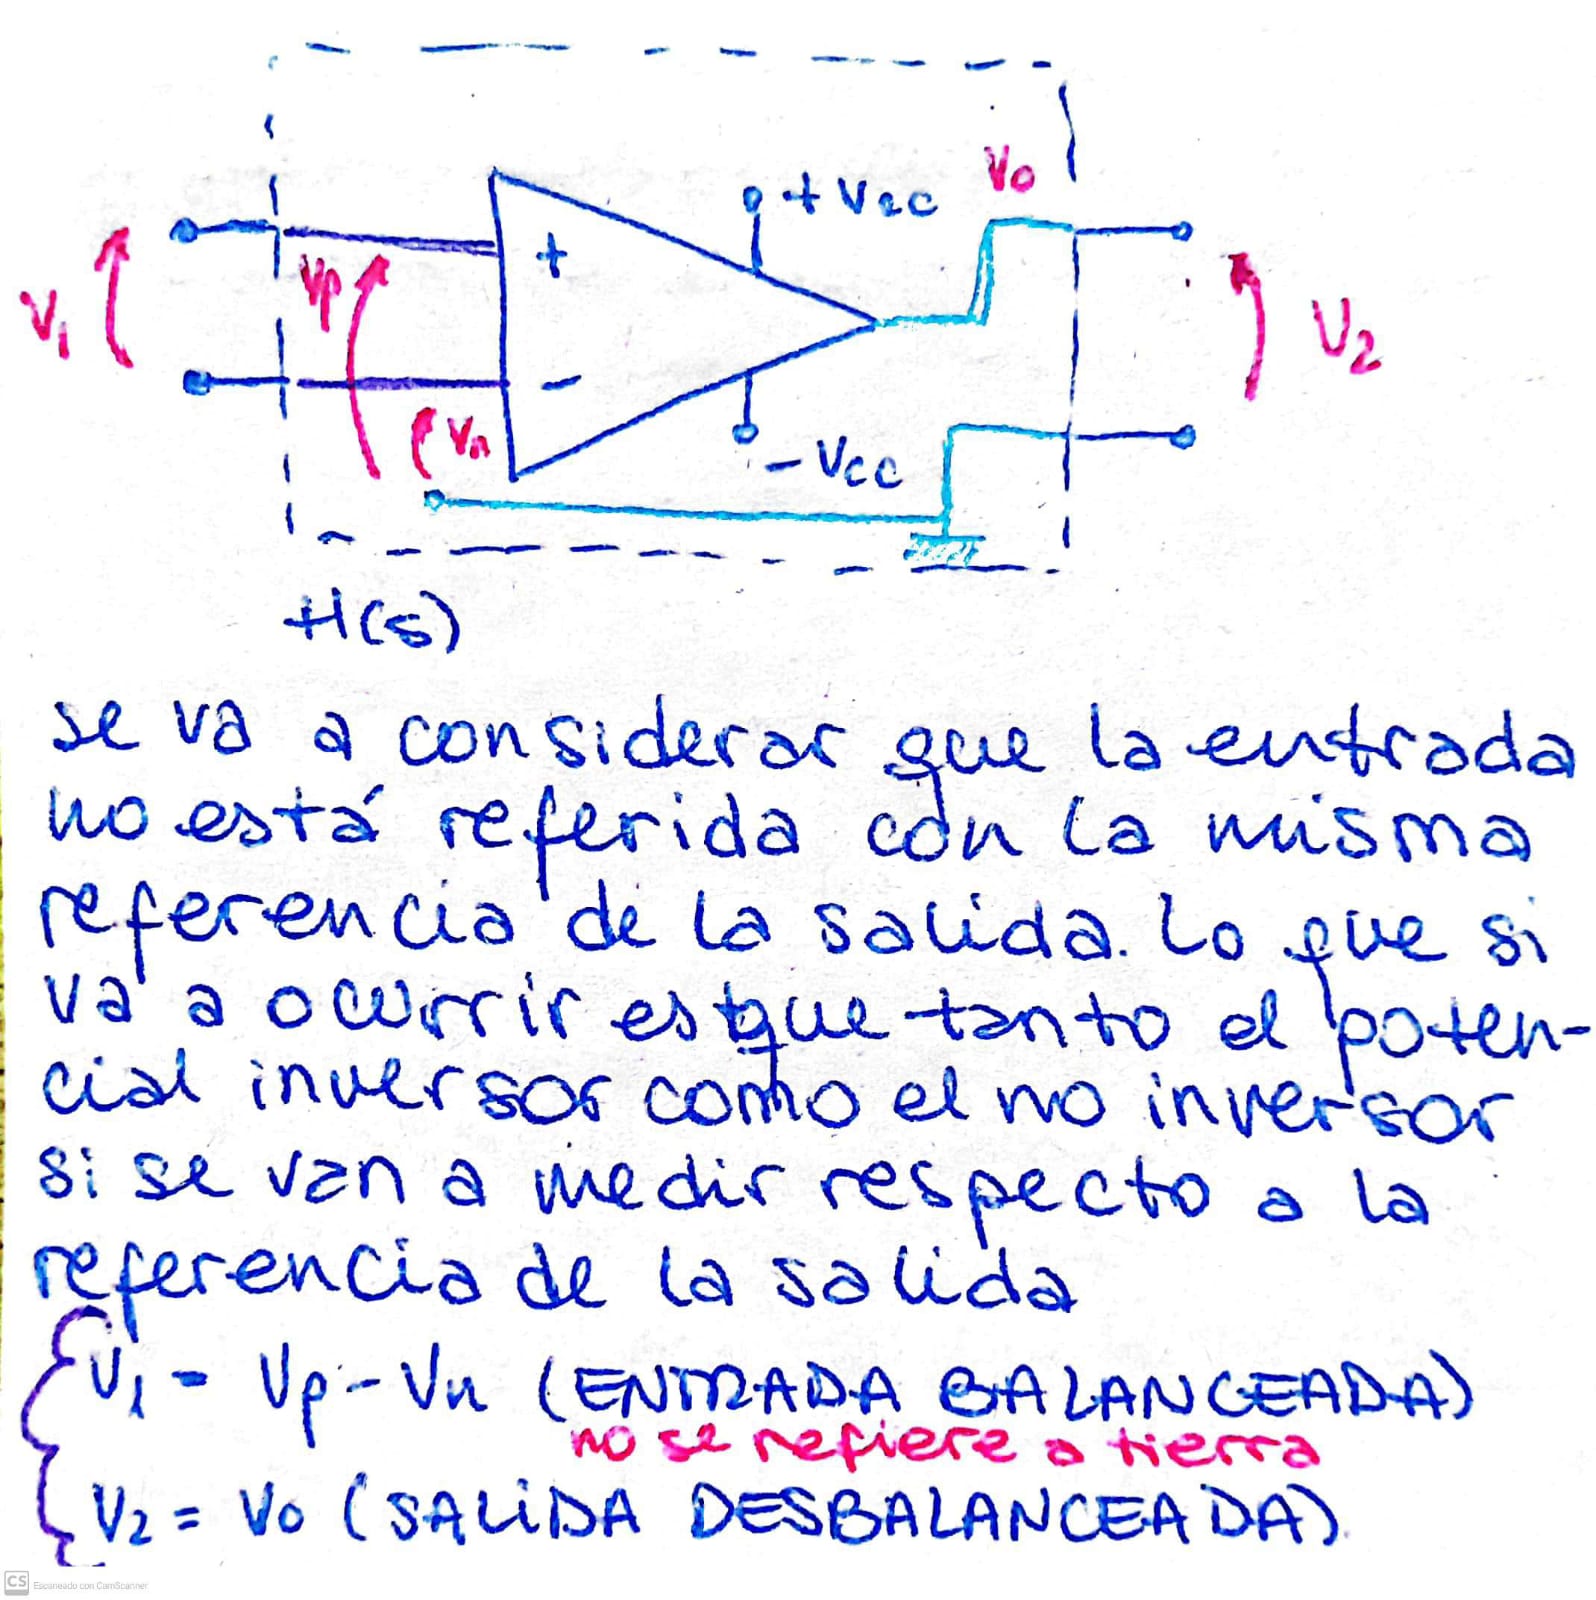 + Vcc
Vo
V1
Vp
+
-
Vn
- Vcc
V2
H(s)
se va a considerar que la entrada
no está referida con la misma
referencia de la salida. Lo que si
va a ocurrir es que tanto el poten-
cial inversor como el no inversor
si se van a medir respecto a la
referencia de la salida
V1 = Vp - Vn (ENTRADA BALANCEADA)
no se refiere a tierra
V2 = Vo (SALIDA DESBALANCEADA)
CS Escaneado con CamScanner